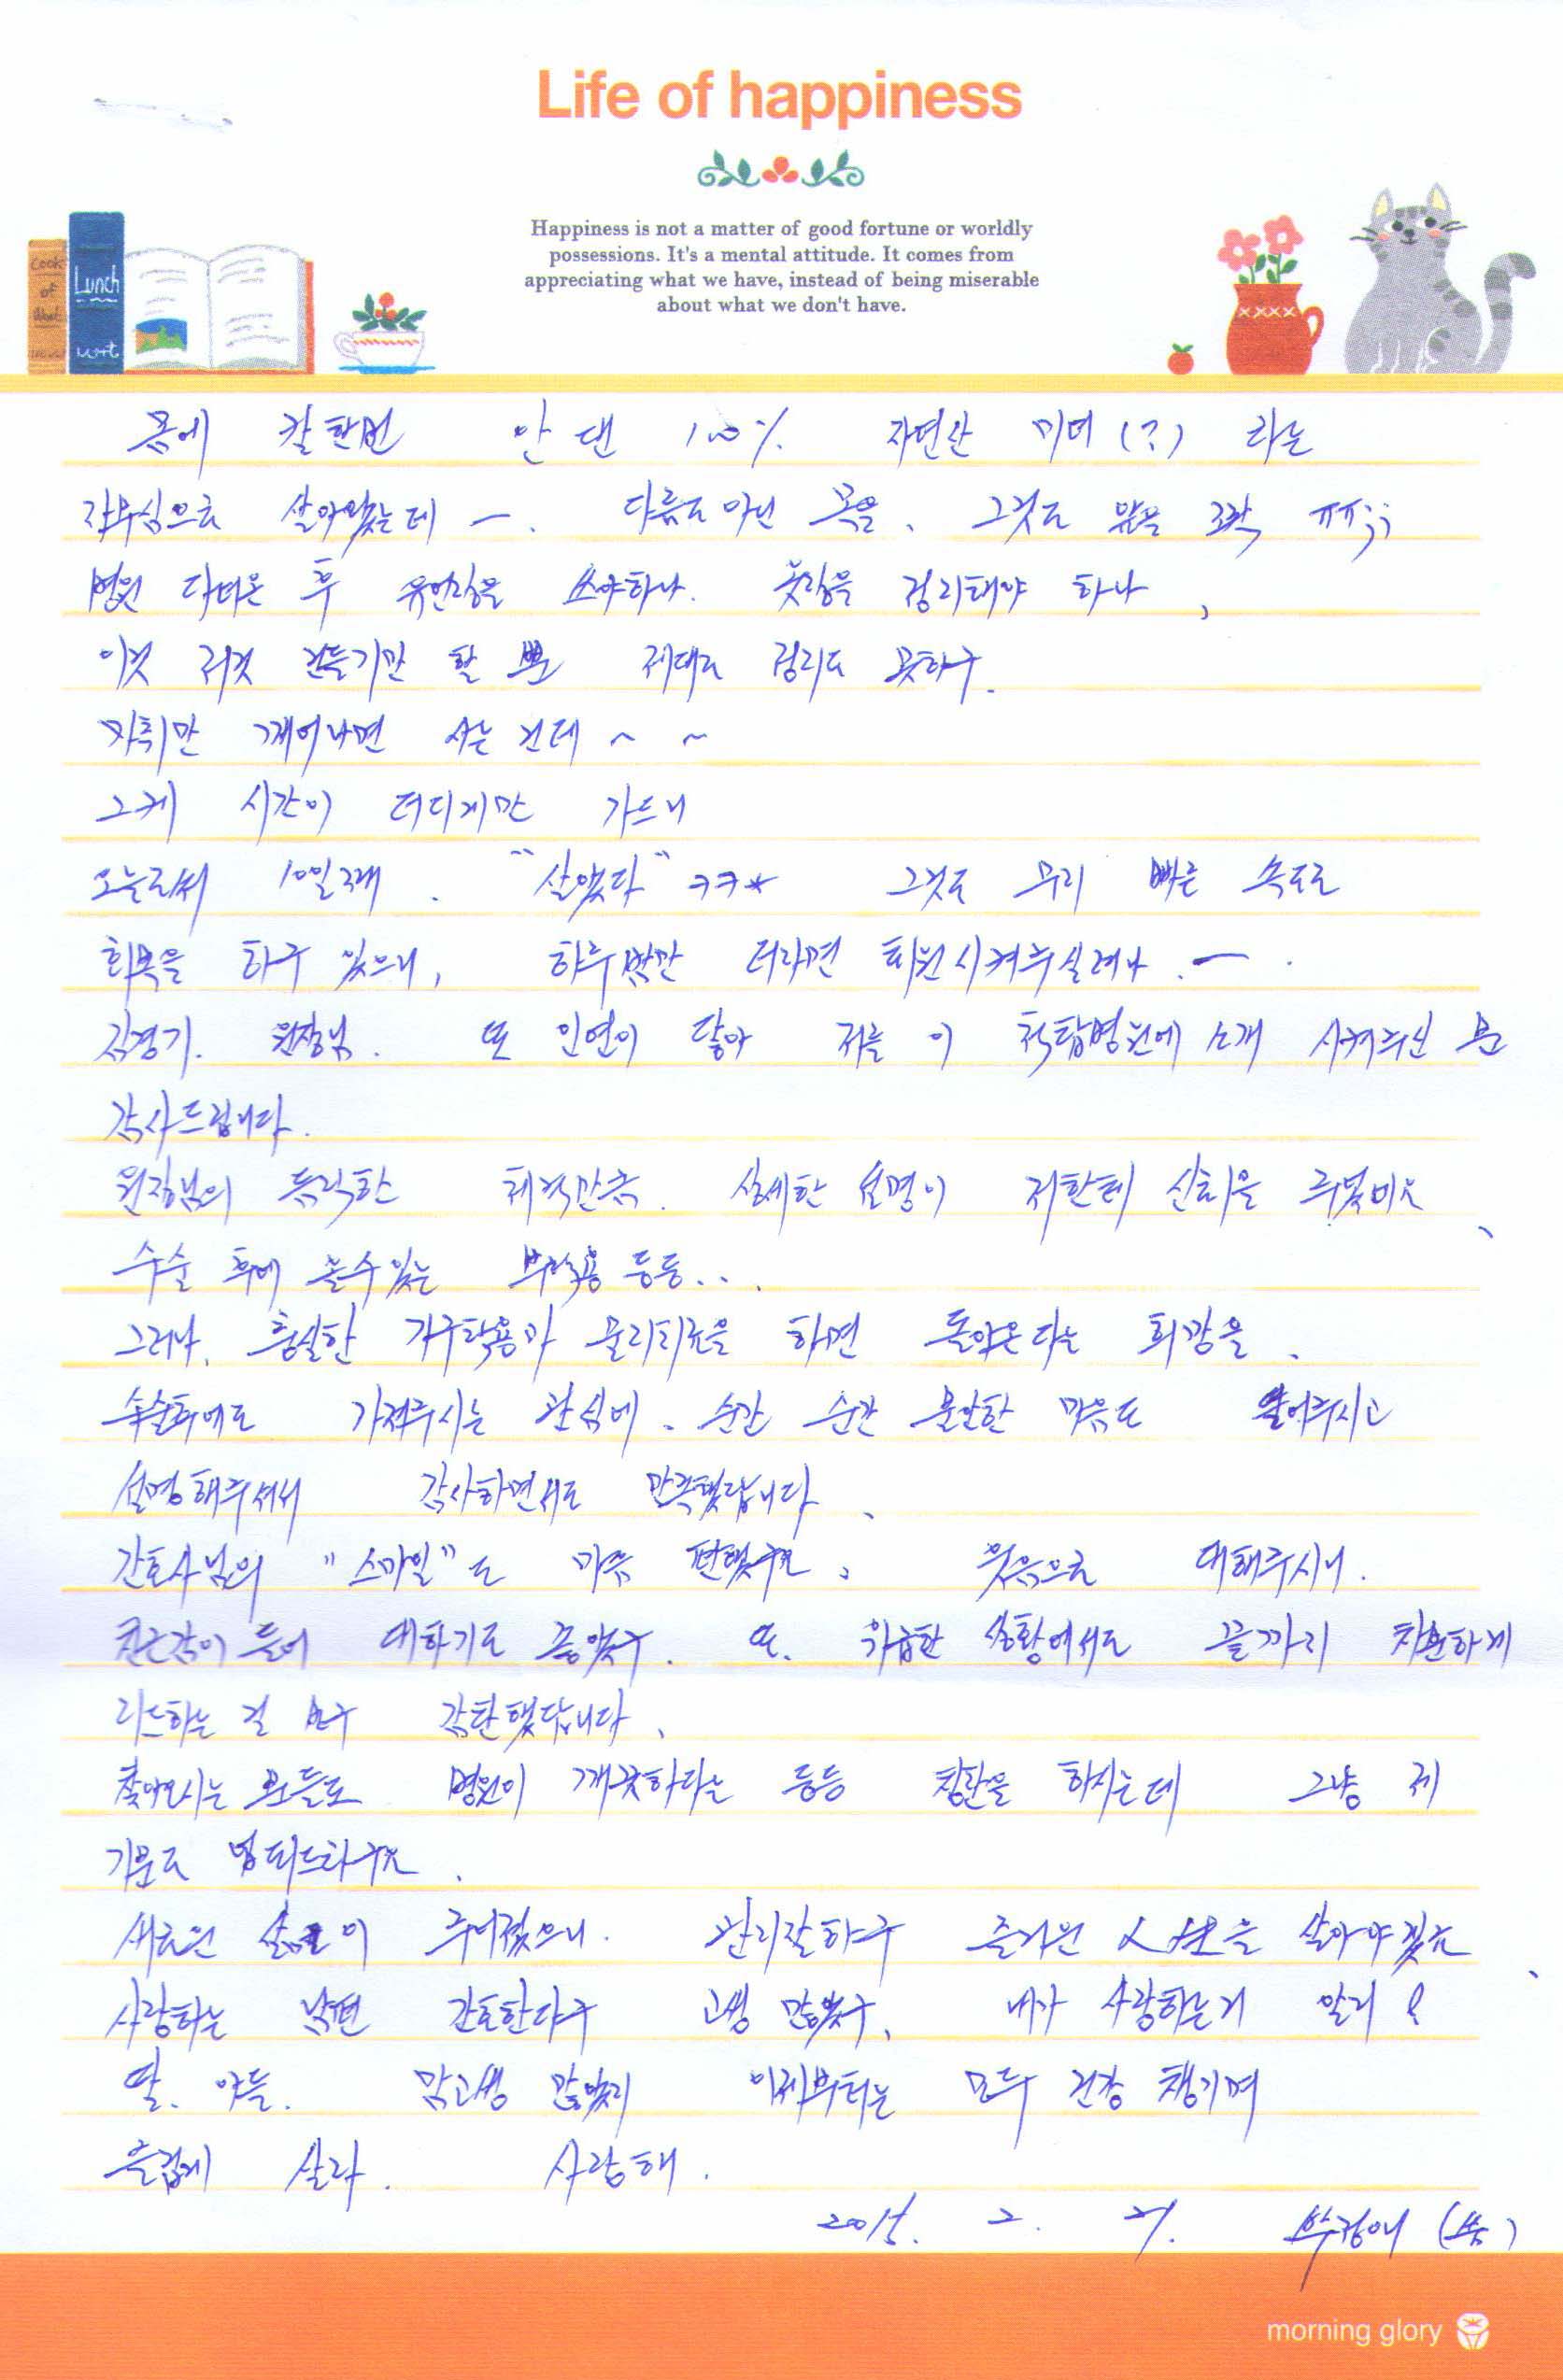 Life of happiness
Happiness is not a matter of good fortune or worldly
possessions. It's a mental attitude. It comes from
appreciating what we have, instead of being miserable
about what we don't have.
Cook
of
Lunch
몸에 칼한번 안 댄 100% 자연산 미녀(?) 라는
자부심으로 살아왔는데 ㅡ. 다름도 아닌 목을, 그것도 앞을 ㅠㅠ;;
병원 다녀온 후 유언장을 쓰야하나. 옷장을 정리해야 하나,
이것 저것 건들기만 할 뿐 제대로 정리도 못하구.
마취만 깨어나면 사는 건데 ~ ~
그케 시간이 더디게만 가드니
오늘로써 10일째. "살았다" ㅋㅋ* 그것도 무리 빠른 속도로
회복을 하구 있으니, 하루밤만 더라면 퇴원시켜주실려나. ㅡ.
김경기. 원장님. 또 인연이 닿아 저를 이 척탑병원에 소개 시켜주신 분
감사드립니다.
원장님의 듬직한 체격만큼. 상세한 설명이 저한테 신뢰을 주었비요.
수술 후에 올수있는 부작용 등등...
그러나, 충실한 가구착용과 물리치료을 하면 돌아온다는 희망을.
수술후에도 가져주시는 관심에. 순간 순간 불안한 마음도 덜어주시고
설명해주셔서 감사하면서도 만족했답니다.
간호사님의 "스마일"도 마음 편했구요, 웃음으로 대해주시니.
친근감이 들어 대하기도 좋았구. 또. 위급한 상황에서도 끝까지 차분하게
리드하는 걸 보구 감탄했답니다.
찾아오시는 분들도 병원이 깨끗하다는 등등 칭찬을 하시는데 그냥 제
기분도 업되드라구요.
새로운 삶이 주어졌으니. 관리잘하구 즐거운 人生을 살아야겠죠.
사랑하는 남편 간호한다구 고생 많았구, 내가 사랑하는거 알지?
딸. 아들. 맘고생 많았지 이제부터는 모두 건강 챙기며
즐겁게 살자. 사랑해.
2015. 2. 21. 박정애 (쏭)
morning glory